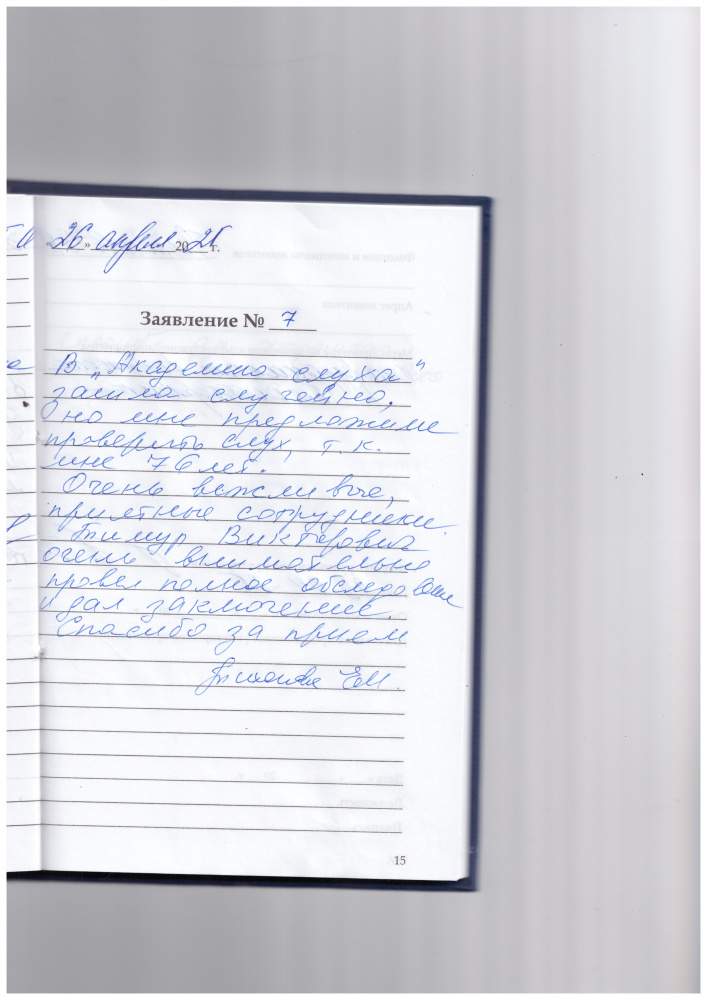 «26» апреля 2025 г.
Заявление № 7
В „Академию слуха"
зашла случайно,
но мне предложили
проверить слух, т.к.
мне 76 лет.
Очень вежливые,
приятные сотрудники.
Тимур Викторович
очень внимательно
провел полное обследование
и дал заключение.
Спасибо за прием
Е.И.
15